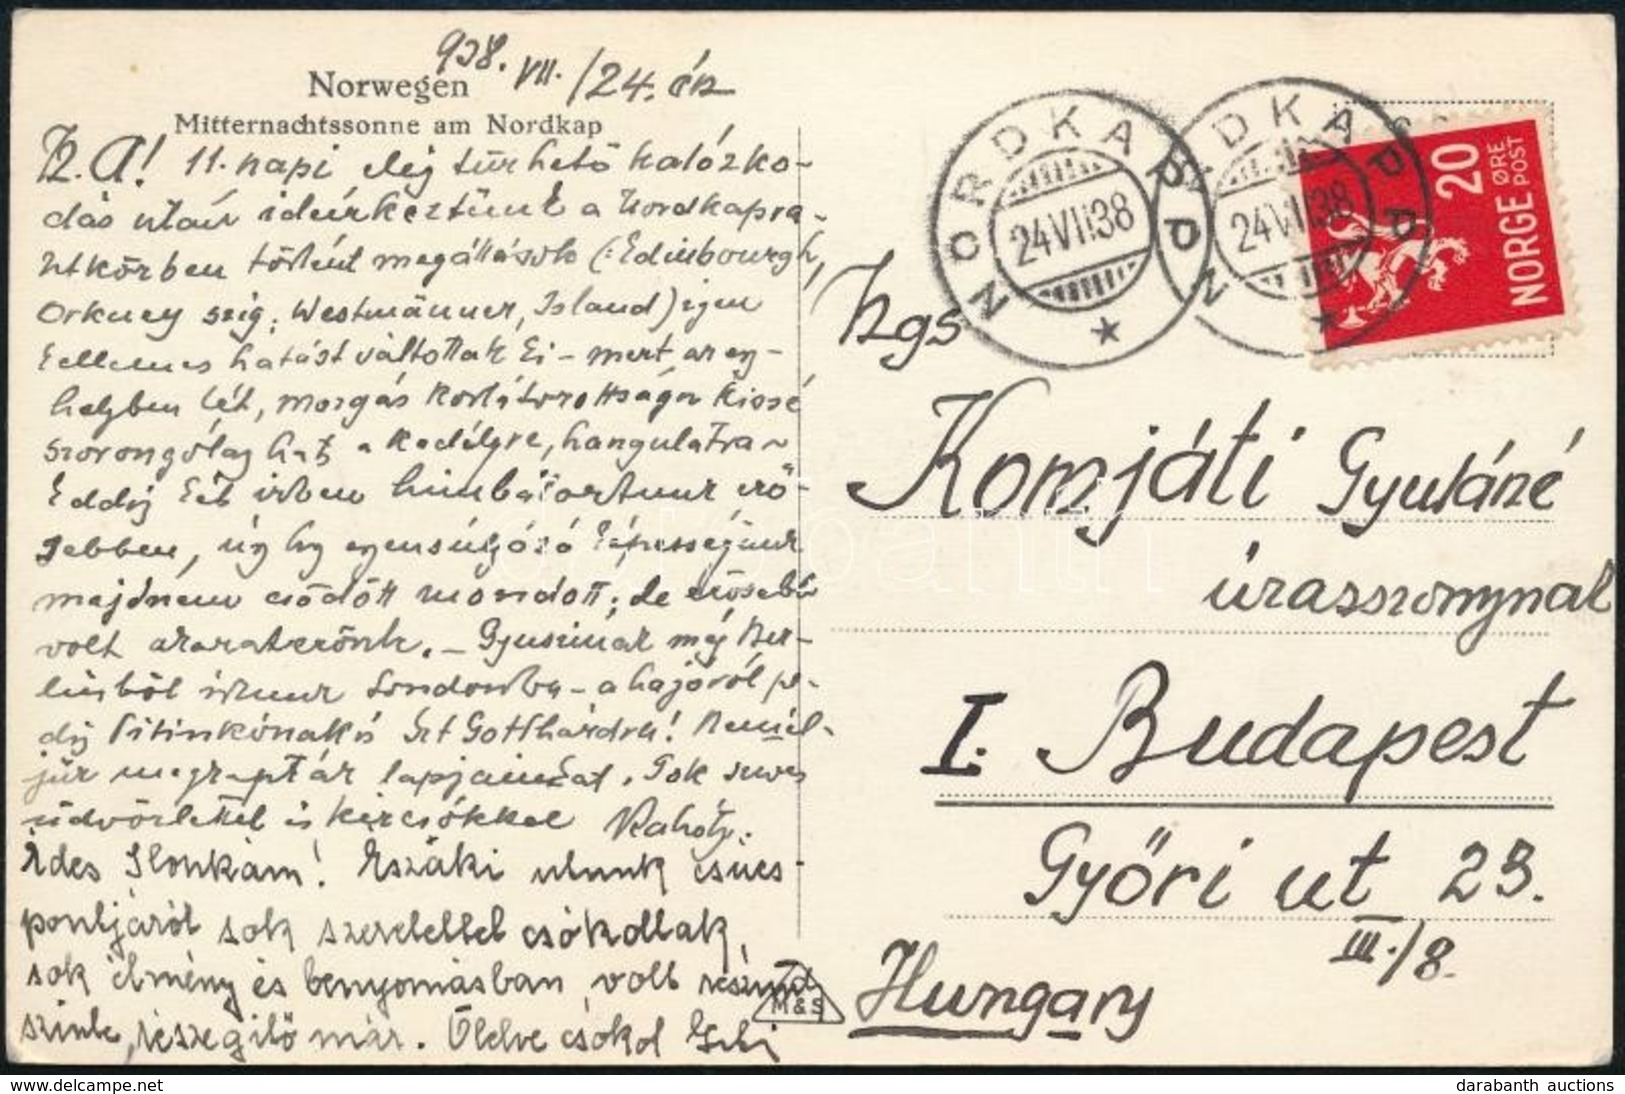 938. VII./24. én
Norwegen
Mitternachtssonne am Nordkap
K. A! 11. napi elég tűrhető kalózko-
dás után ideérkeztünk a Nordkapra –
Útközben történt megállások (: Edinbourgh,
Orkney szig; Westmänner, Island) igen
kellemes hatást váltottak ki – mert az egy-
helyben lét, mozgás korlátozottsága kissé
szorongólag hat a kedélyre, hangulatra –
Eddig két ízben himbálóztunk erő-
sebben, úgy hogy egyensúlyozó képességünk
majdnem csődöt mondott; de erősebb
volt akaraterőnk. – Gyuszinak még Ber-
linből írtunk Londonba – a hajóról pe-
dig Titinkónak is Szt Gotthárdra! Reméljük
megkapták lapjainkat. Sok szives
üdvözlettel és kézcsókkal
Édes Ilonkám! Északi utunk csúcs-
pontjáról sok szeretettel csókollak,
sok élmény és benyomásban volt részünk
szinte részegítő már. Ölelve csókol
M&S
NORDKAPP
24 VII 38
NORDKAPP
24 VII 38
20
ØRE
POST
NORGE
Ngs
Komjáti Gyuláné
úraszonynak
I. Budapest
Győri ut 23.
III./8.
Hungary
darabanth
www.delcampe.net
darabanth auctions